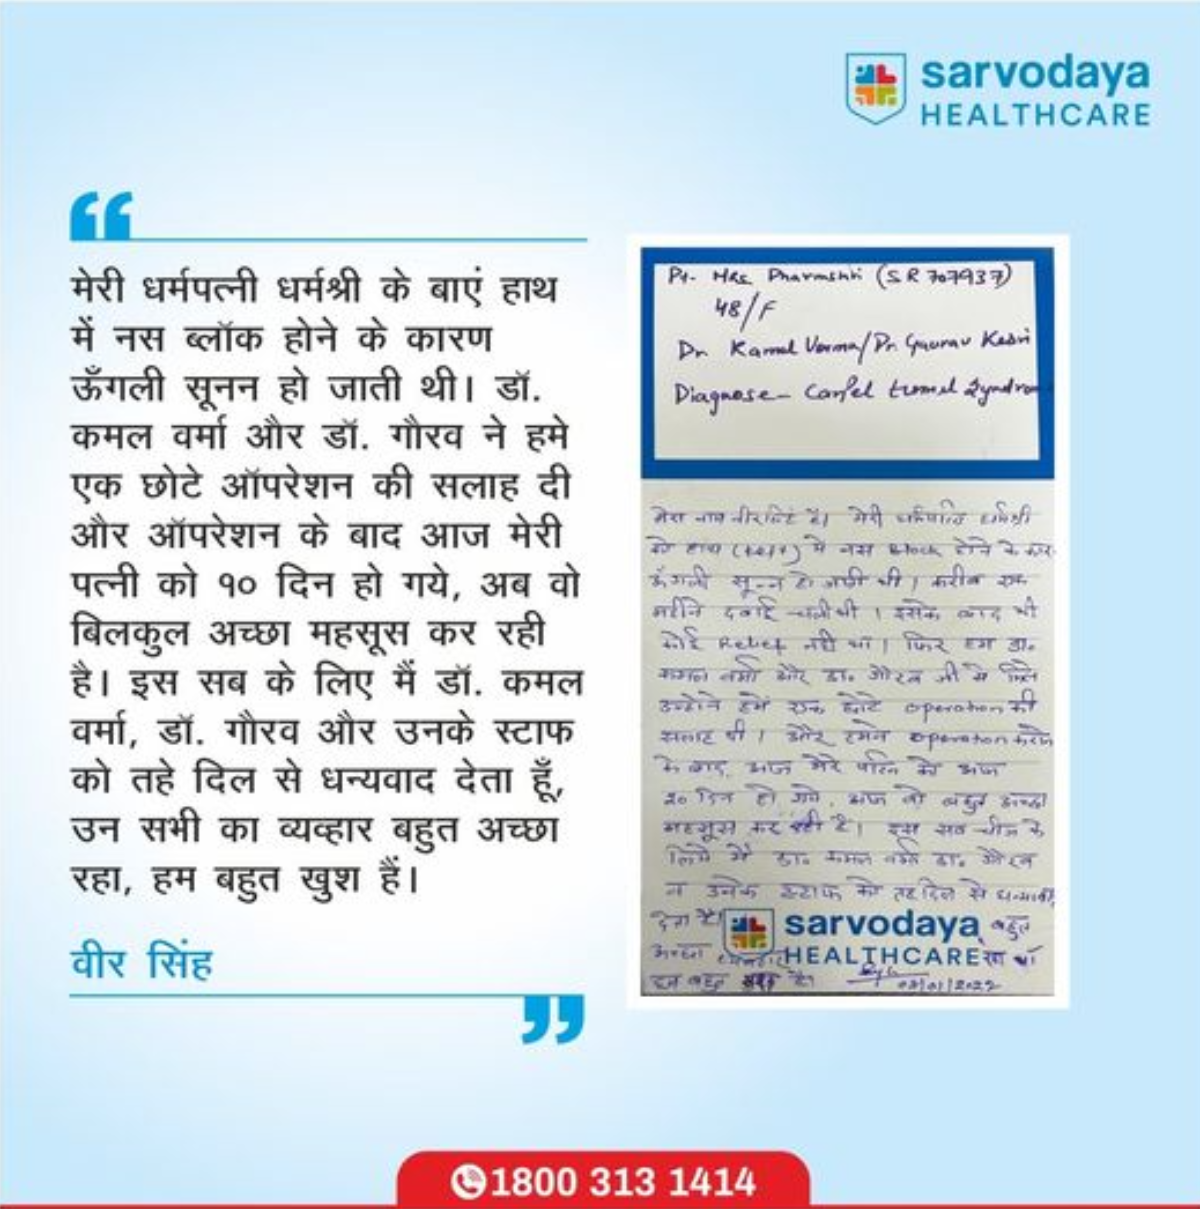 sarvodaya
HEALTHCARE
मेरी धर्मपत्नी धर्मश्री के बाएं हाथ
में नस ब्लॉक होने के कारण
ऊँगली सूनन हो जाती थी। डॉ.
कमल वर्मा और डॉ. गौरव ने हमे
एक छोटे ऑपरेशन की सलाह दी
और ऑपरेशन के बाद आज मेरी
पत्नी को १० दिन हो गये, अब वो
बिलकुल अच्छा महसूस कर रही
है। इस सब के लिए मैं डॉ. कमल
वर्मा, डॉ. गौरव और उनके स्टाफ
को तहे दिल से धन्यवाद देता हूँ,
उन सभी का व्यव्हार बहुत अच्छा
रहा, हम बहुत खुश हैं।
वीर सिंह
Pt- Mrs Dharmshri (SR 707937)
48/F
Dr Kamal Verma/Dr. Gaurav Kesri
Diagnose - Carpel tunnel Syndrom
मेरा नाम वीर सिंह है। मेरी धर्मपत्नि धर्मश्री
के हाथ (left) मे नस Block होने के कारण
ऊँगली सून्न हो जाती थी। करीब एक
महीने दवाई चली थी। इसके बाद भी
कोई Relief नही था। फिर हम डा.
कमल वर्मा और डा. गौरव जी से मिले
उन्होने हमें एक छोटे operation की
सलाह दी। और हमने operation
के बाद, आज मेरे पत्नि को आज
20 दिन हो गये, आज वो बहुत अच्छा
महसूस कर रही है। इस सब चीज के
लिये मैं डा. कमल वर्मा डा. गौरव
व उनके स्टाफ को तह दिल से
देता हूँ। sarvodaya बहुत
अच्छा HEALTHCARE रहा
हम बहुत खुश है। 03/01/2022
1800 313 1414